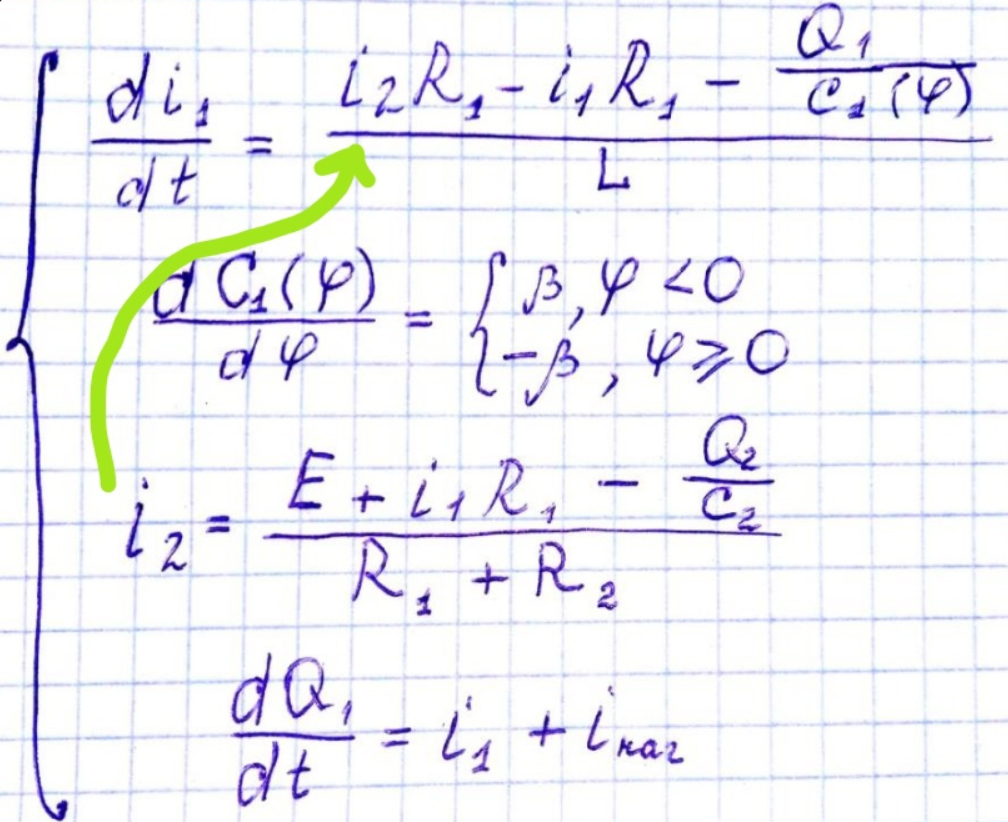 di₁/dt = (i₂R₁ - i₁R₁ - Q₁/C₁(φ))/L
dC₁(φ)/dφ = { β, φ < 0
-β, φ ⩾ 0
i₂ = (E + i₁R₁ - Q₂/C₂)/(R₁ + R₂)
dQ₁/dt = i₁ + iнаг